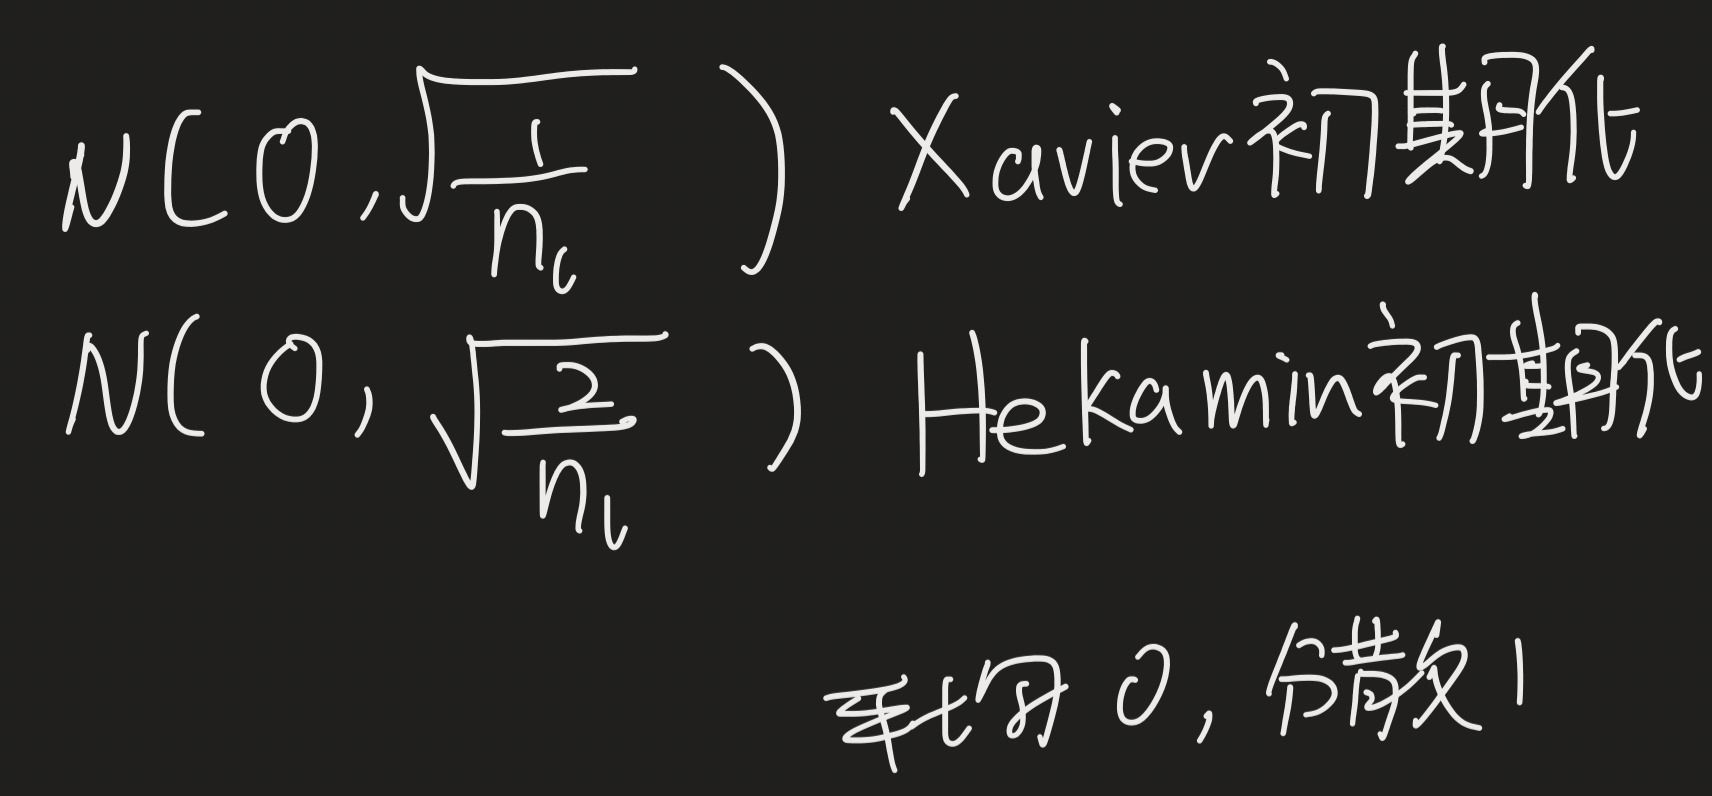 N(0, √(1/n_i)) Xavier初期化
N(0, √(2/n_i)) Hekamin初期化
平均0, 分散1